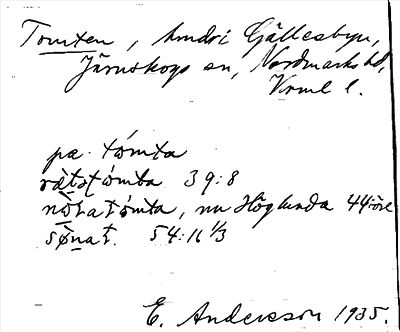 Tomten, hmdri Gällesbyn,
Järnskogs sn, Nordmarks hd,
Vrml l.
pæ. tómta
rætstómta 39:8
nòtatómta, nu Höglunda 44-öre
sønat. 54:16 1/3
E. Andersson 1935.